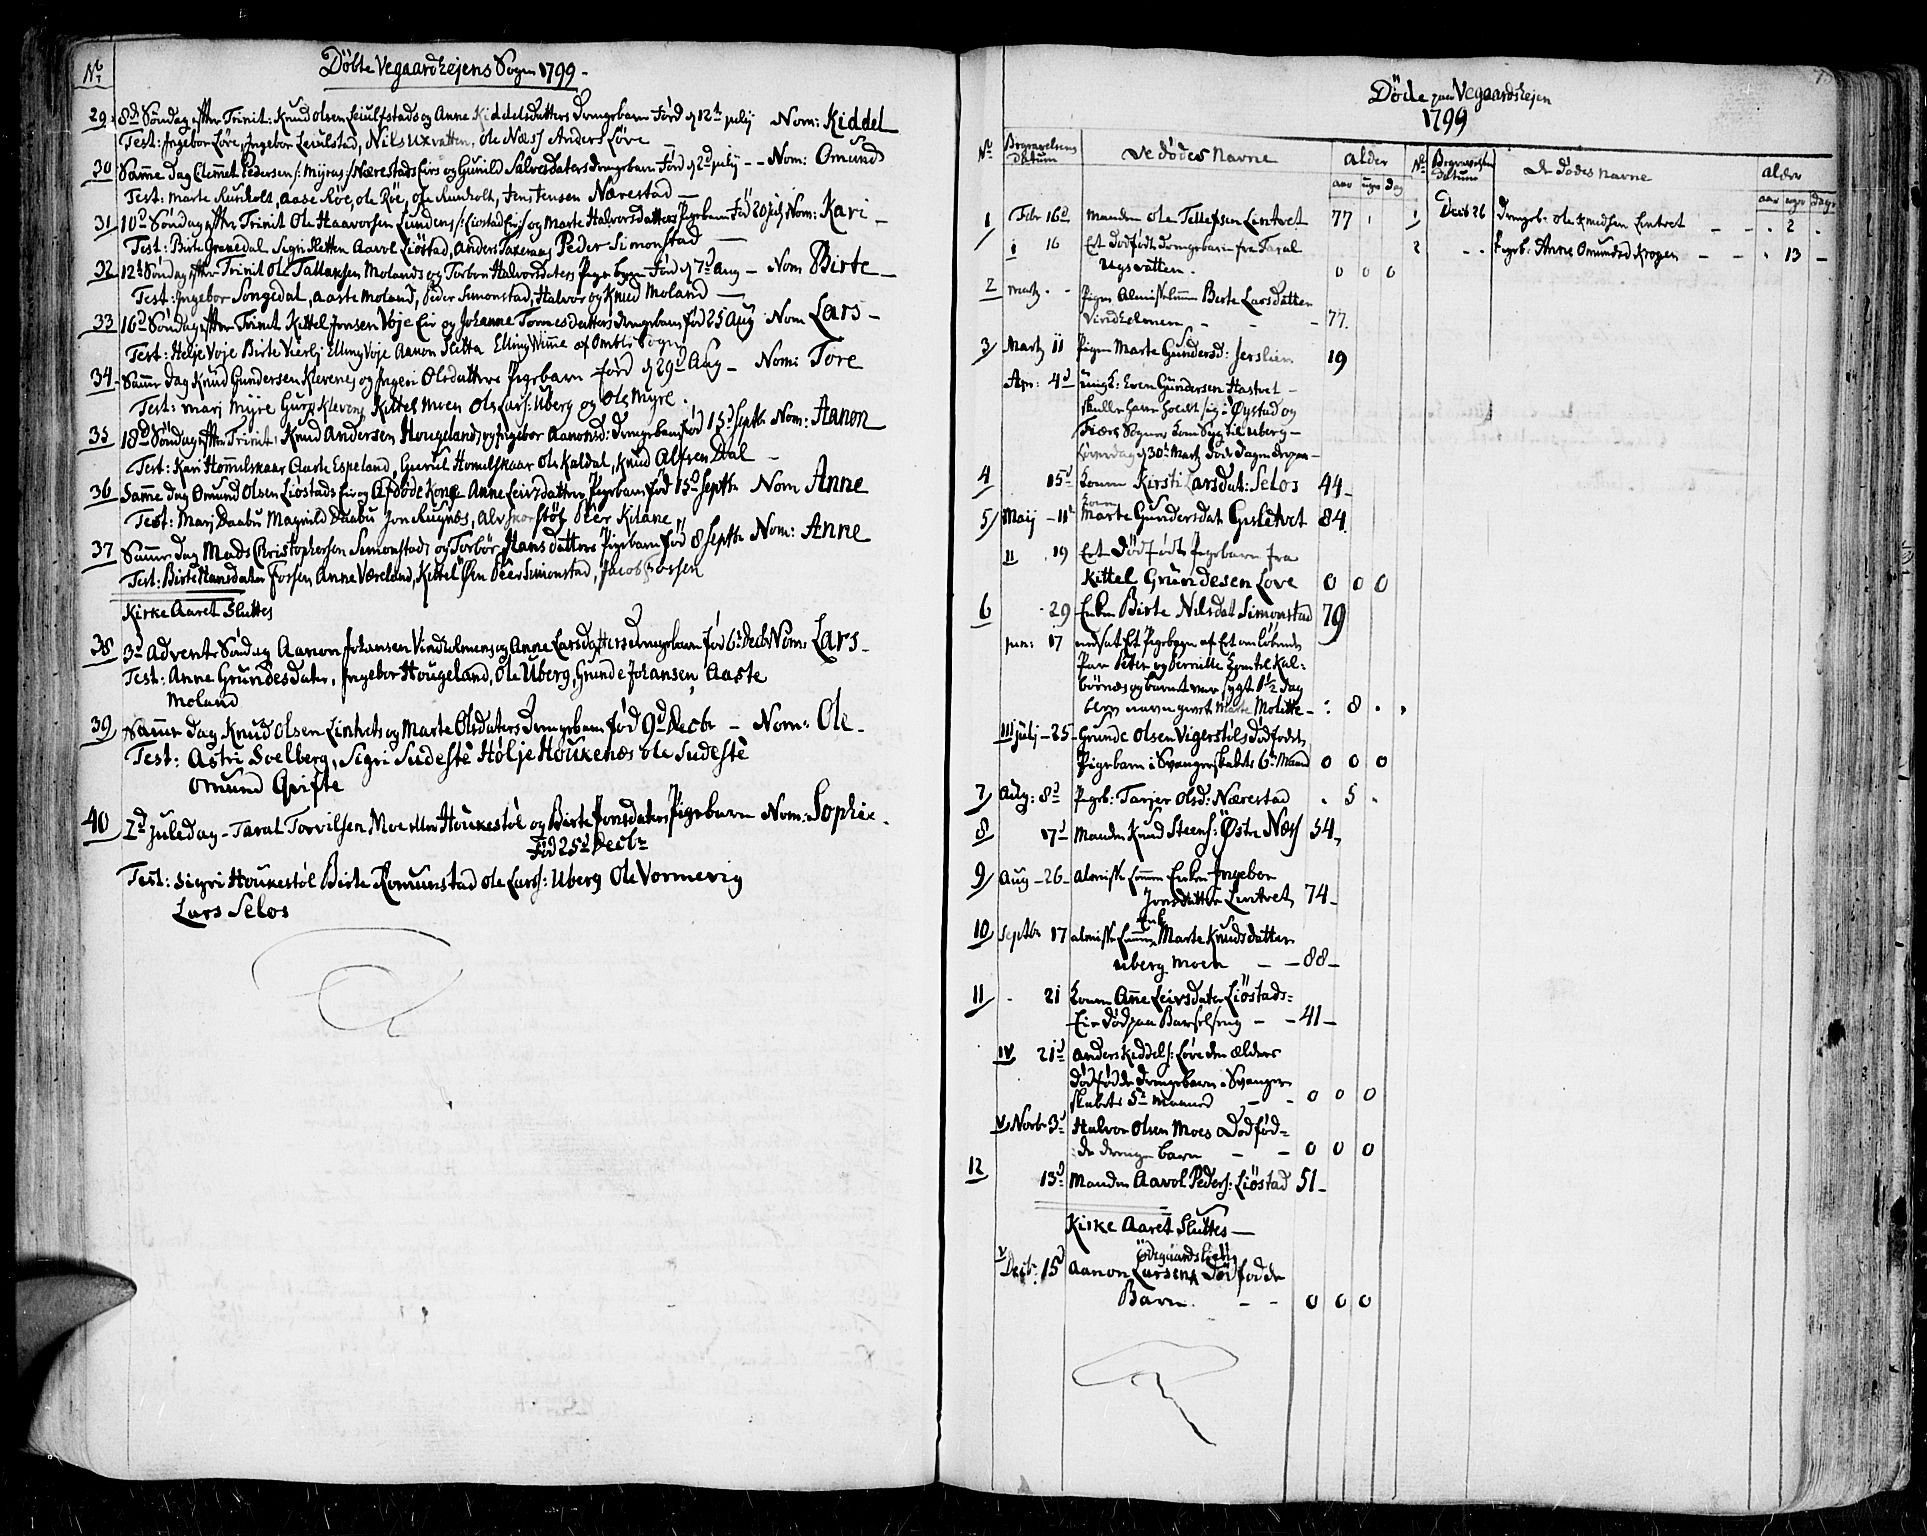 No
Döbte Vegaardshejens Sogn 1799.
29. 8d Söndag efter Trinit: Knud Olsen Leiulfstads og Anne Kiddelsdatters Drengebarn Föd d 12t july Nom: Kiddel
Test: Ingebor Löve, Ingebor Leiulstad, Nils Uxvatten, Ole Næss Anders Löve
30 Samme Dag Clemmet Pedersen /: Myras :/ Nærestads Eirs og Gunild Salvesdaters drengebarn Föd d 2d july - - Nom: Omund
Test: Marte Runholt, Aase Röe, Ole Röe, Ole Runholt, Jens Jensen Nærestad —
31 10d Söndag efter Trinit Ole Haavorsen Lundens /: Liöstad Eie :/ og Marte Halvorsdatters Pigebarn Föd 20 july Nom: Kari -
Test: Birte Grasdal Sigri Sletten Aavol Liöstad, Anders Peder Simonstad —
32 12t Söndag efter Trinit Ole Tallaksen Molands og Torbor Halvorsdaters Pige barn Föd d 7d Aug - Nom Birte -
Test: Ingebor Songedal, Aaste Moland, Peder Simonstad, Halvor og Knud Moland —
33 16d Söndag efter Trinit Kittel Jensen Voje Eie og Johanne Tommesdatters drengebarn föd 25 Aug Nom Lars -
Test: Helje Voje Birte Vierli Elling Voje Aanon Sletta Elling Wimme af Omtli Sogn
34 Samme dag Knud Gundersen Klevenes og Ingeri Olsdatters Pigebarn föd d 29d Aug - Nom: Tore
Test: Marj Myre Guro Klevene Kittel Moen Ole Lars: Uberg og Ole Myre.
35 18d Söndag efter Trinit: Knud Andersen Hougelands og Ingebor Aanonsd: Drengebarn föd 15d Septbr Nom: Aanon
Test: Kari Hommelskaar Aaste Espeland, Gunil Homelskaar Ole Kaldal, Knud Alfsen Dal -
36 Samme dag Omund Olsen Liöstads Eie og Afdöde Kone Anne Leivsdatters Pigebarn föd 15d Septbr Nom Anne
Test: Marj Daabu Magnild Daabu Jon Rugnes, Alv Peer Kilane
37 Samme dag Mads Christophersen Simonstads og Torbör Hansdatters Pigebarn föd 8 Septbr Nom: Anne
Test: Birte Hansdater Fossen Anne Væreland, Kittel Öen Peer Simonstad, Jacob Fossen
Kirke Aaret Sluttes
38 3d Advents Söndag Aanon Johansen Vindholmens og Anne Larsdatters Drengebarn föd 6t Decb Nom: Lars -
Test: Anne Grundesdater, Ingebor Hougeland, Ole Uberg, Grunde Johansen, Aaste
Moland
39 Samme dag Knud Olsen Lintvets og Marte Olsdaters Drengebarn föd 9d Decbr - Nom: Ole -
Test: Astri Soelberg, Sigri Sudeste Hölje Houkenæs Ole Sudeste
Omund Grifte
40 2d juledag - Taral Torvilsen Moe eller Houkestöl og Birte Jonsdaters Pigebarn Nom: Sophie.
Föd 25d Decbr
Test: Sigri Houkestöl Birte Romunstad Ole Larss: Uberg Ole Vormevig
Lars Selos
Döde paa Vegaardshejen
1799
No Begravelsens Datum De dödes Navne Alder
aar uger Dag
No Begravelsens Datum De dödes Navne Alder
aar uger dage
1 Febr 16d Manden Ole Tellefsen Lintvet 77
i 16 Et dödfödt drengebarn fra Taral
Ugsvatten. 0 0 0
2 Martz - Pigen Almisselem Birte Larsdatter
Vindholmen - - 77.
3 Martz 11 Pigen Marte Gundersd: Jerslien 19
Apr: 4d Ungk: Even Gundersen Hastvet -
skulle have holdt sig i Öystad og
Fiærs Sogner kom Syg til Uberg -
Löverdag d 30t Martz döde Dagen
4 15d Konen Kirsti Larsdat: Selos 44-
5 Maij - 11t Konen Marte Gundersdat Gusletvet 84
ii 19 Et Dödfödt Pigebarn fra
Kittel Grundesen Love 0 0 0
6 29 Enken Birte Nilsdat Simonstad 79
jun: 17 nedsat Et Pigebarn af Et omlöbende
Par Peter og Pernille kom til Kal-
börnes og barnet var sygt 1½ Dag
blev navn givet Marte Molitte - : 8 . .
III july - 25 - Grunde Olsen Vigerstöls Dödfödt
Pigebarn i Svangerskabets 6te Maaned 0 0 0
7 Aug: 8d Pigeb: Tarjer Olsd: Nærestad . 5 .
8 17d Manden Knud Steens: Östre Næss 54,
9 Aug - 26 - Almisse Lemm Enken Ingebor
Jonsdatter Lintvet, 74-
10 Septbr 17 Almisse Lemm Enk Marte Knudsdatter
Uberg Moen - - 88-
11 - 21 Konen Anne Leivsdater Liöstads=
Eie död paa Barselseng - - 41-
IV 21d Anders Kiddels: Löve den ældres
Dödfödde drengebarn i Svanger
skabets 5t Maaned - - 0 0 0
V Novbr 3d Halvor Olsen Moes Dödföd=
de drenge barn - - 0 0 0
12 13d Manden Aavol Peders: Liöstad 51-
Kirke Aaret Sluttes -
V Decbr 15d Aanon Larsens Ödegaardslien Dödfödde
Barn. - - 0 0 0
1 Decb 26 Drengeb: Ole Knudsen Lintvet - - . 2 .
2 - - Pigeb: Anne Omunds Krogen - - . 13 -